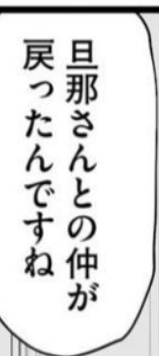 旦那さんとの仲が
戻ったんですね